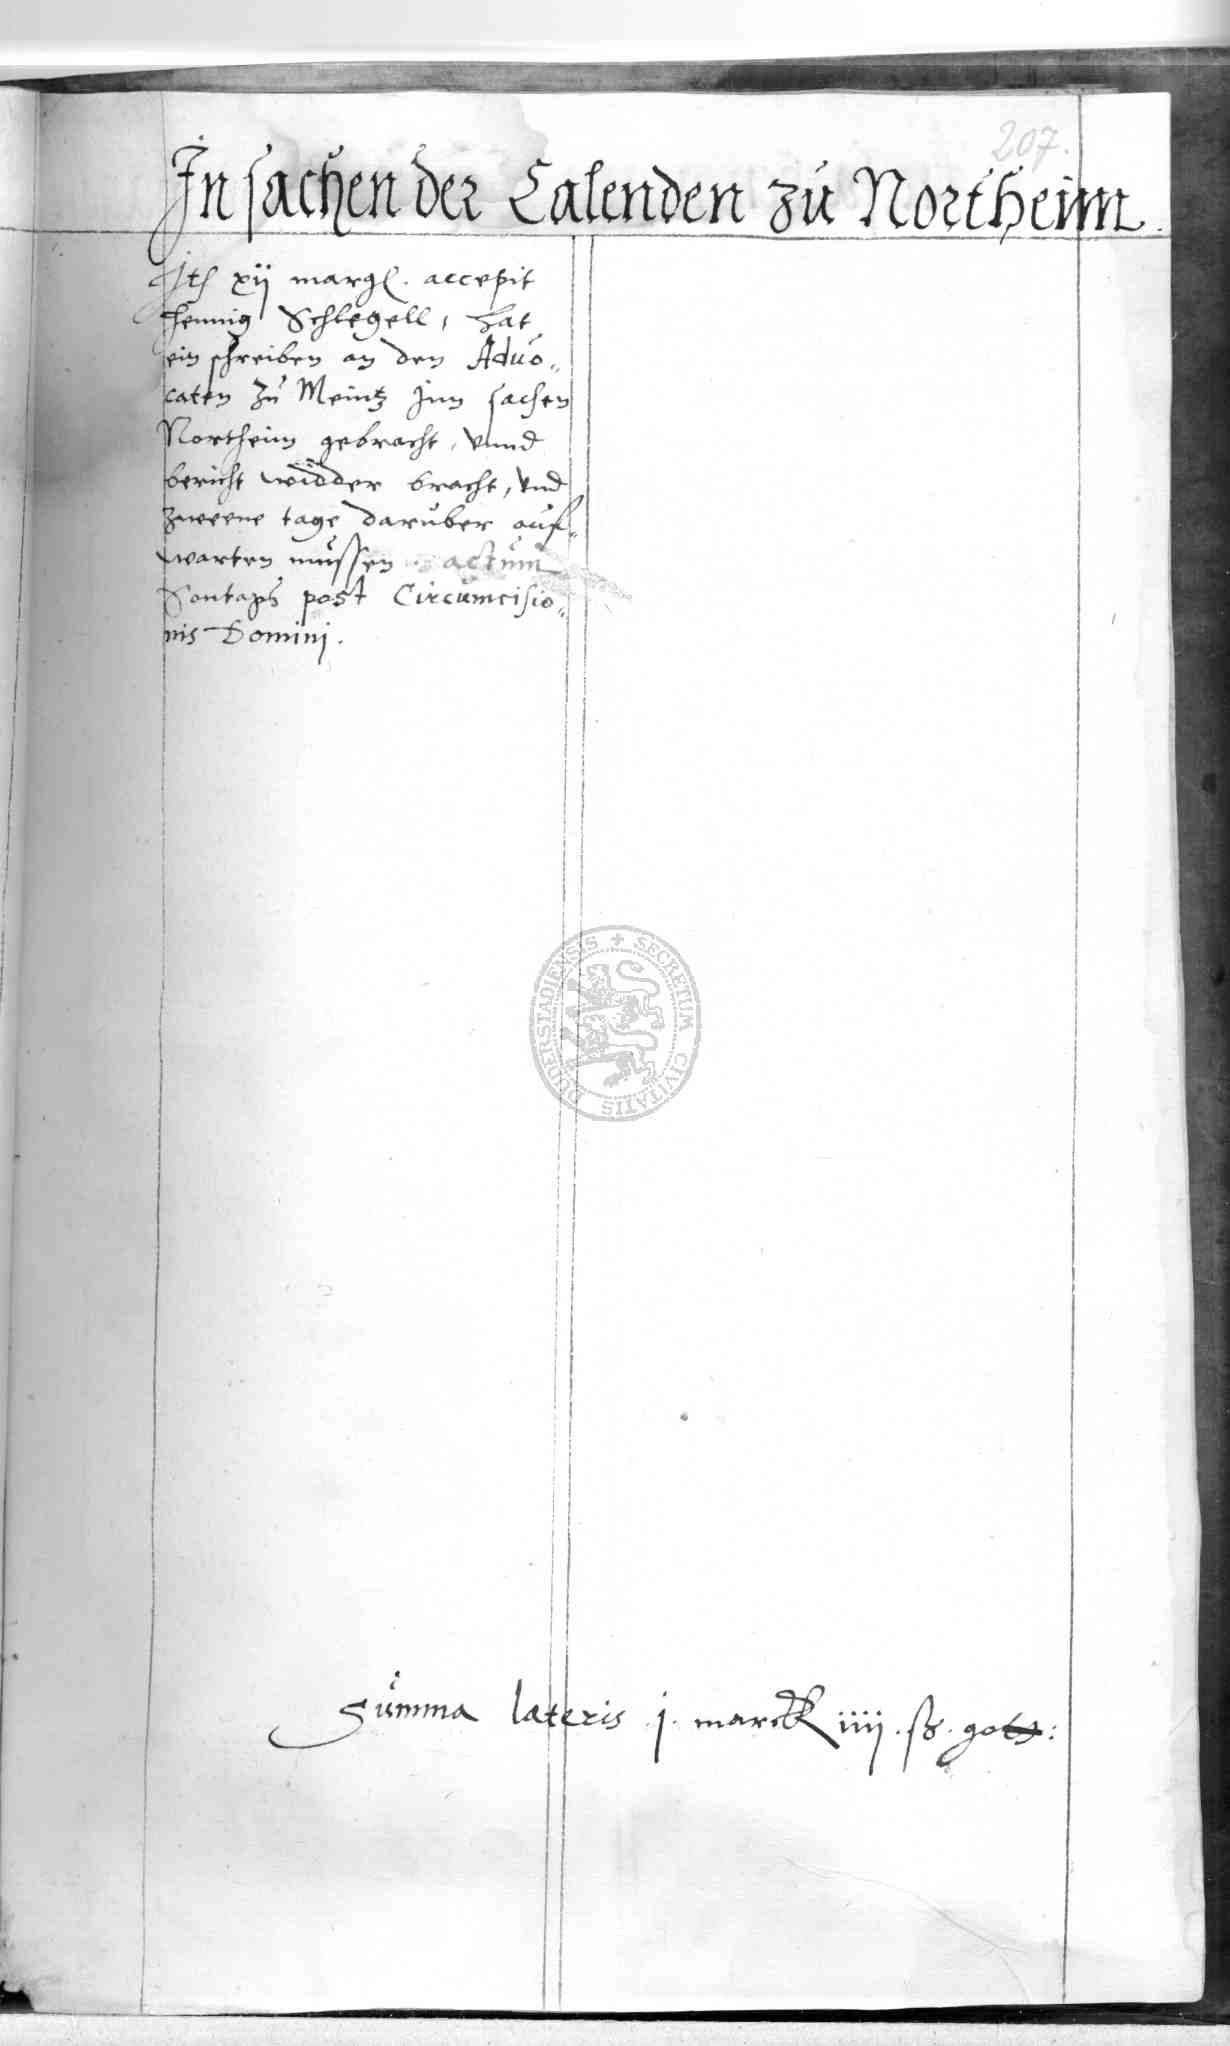 207.
In sachen der Calenden zu Northeim.
Jtē xij margl. accepit
Hennig Schlegell, hat
ein schreiben an den Aduo„
caten zu Meintz Jnn sachen
Northeim gebracht, vnnd
bericht widder bracht, vnd
zweene tage daruber auf„
warten mussen actum
Sontags post Circumcisio„
nis Domini.
SECRETUM CIVITATIS DUDERSTADIENSIS
Summa lateris j. marck iiij. ß. gott: